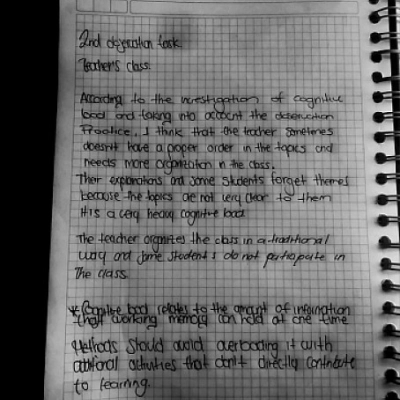 2nd observation task
Teacher's class.
According to the investigation of cognitive
load and taking into account the observation
Practice, I think that the teacher sometimes
doesn't have a proper order in the topics and
needs more organization in the class.
Their explanations and some students forget themes
because the topics are not very clear to them
It is a very heavy cognitive load
The teacher organizes the class in a traditional
way and some students do not participate in
The class
* Cognitive load relates to the amount of information
that working memory can hold at one time
Methods should avoid overloading it with
additional activities that don't directly contribute
to learning.